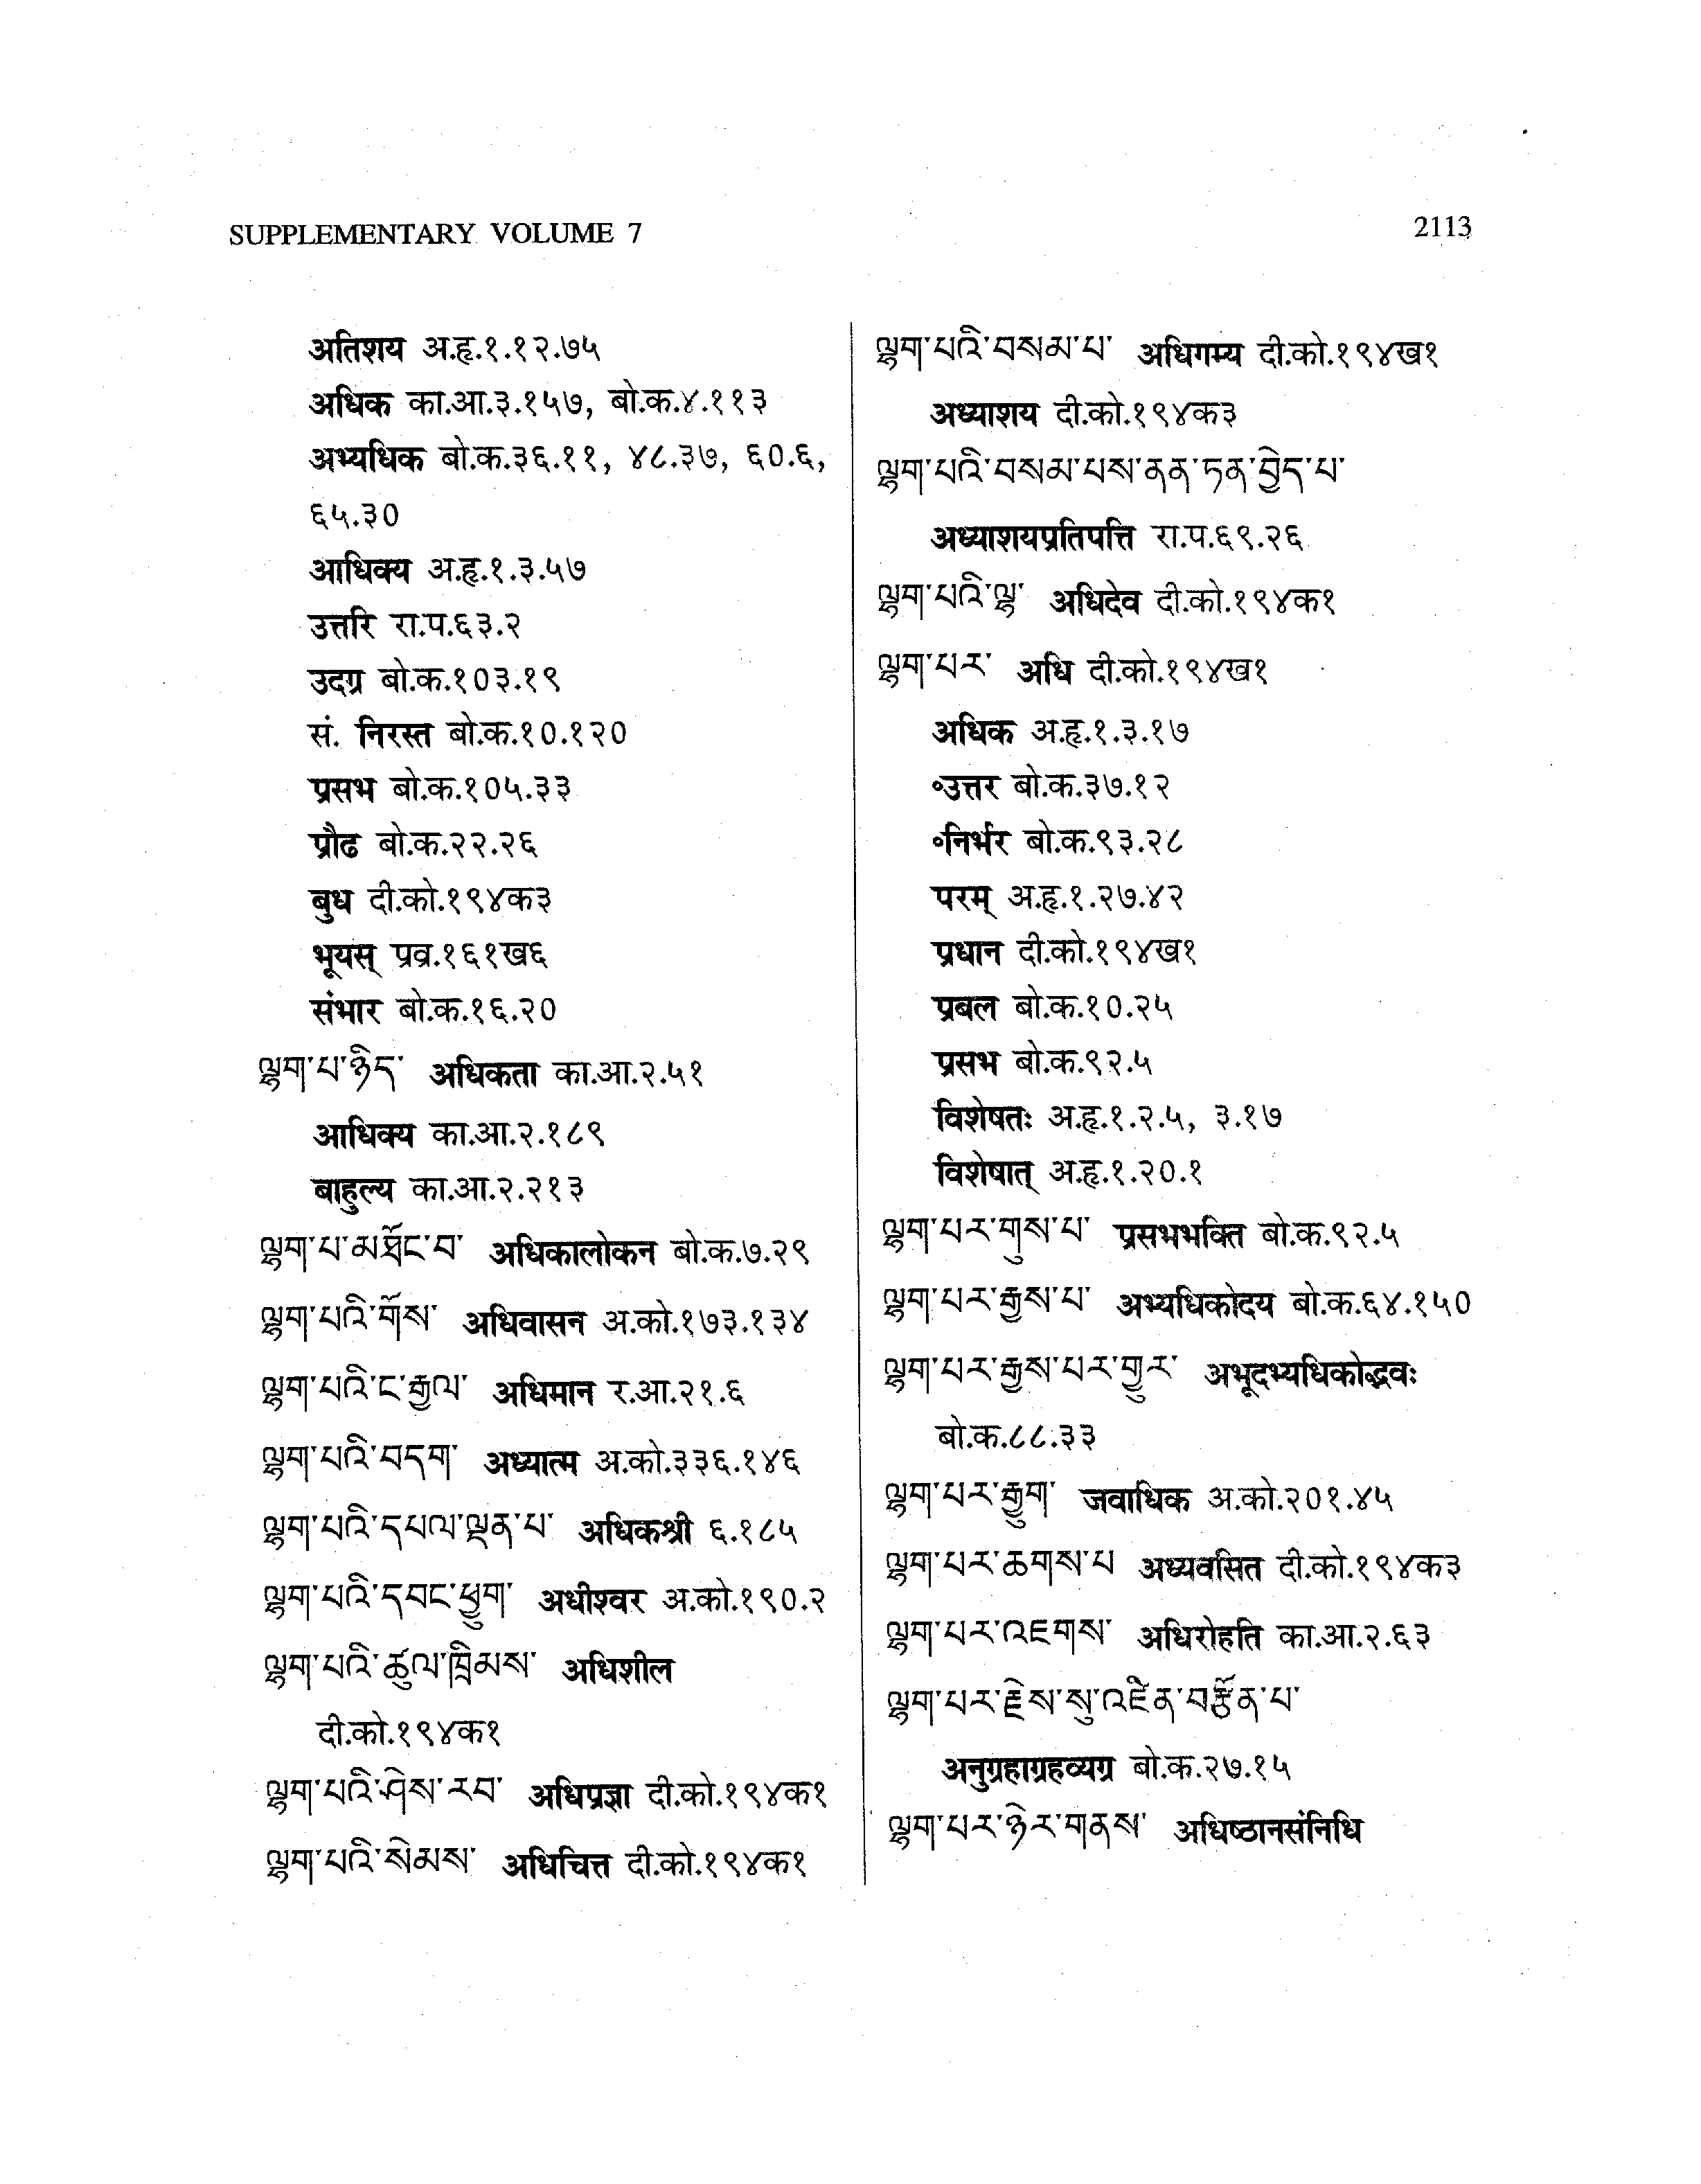 SUPPLEMENTARY VOLUME 7
2113
अतिशय अ.हृ.१.१२.७५
अधिक का.आ.३.१५७, बो.क.४.११३
अभ्यधिक बो.क.३६.११, ४८.३७, ६०.६,
६५.३०
आधिक्य अ.हृ.१.३.५७
उत्तरि रा.प.६३.२
उदग्र बो.क.१०३.१९
सं. निरस्त बो.क.१०.१२०
प्रसभ बो.क.१०५.३३
प्रौढ बो.क.२२.२६
बुध दी.को.१९४क३
भूयस् प्रव्र.१६१ख६
संभार बो.क.१६.२०
ལྷག་པ་ཉིད་ अधिकता का.आ.२.५१
आधिक्य का.आ.२.१८९
बाहुल्य का.आ.२.२१३
ལྷག་པ་མཐོང་བ་ अधिकालोकन बो.क.७.२९
ལྷག་པའི་གོས་ अधिवासन अ.को.१७३.१३४
ལྷག་པའི་ང་རྒྱལ་ अधिमान र.आ.२१.६
ལྷག་པའི་བདག་ अध्यात्म अ.को.३३६.१४६
ལྷག་པའི་དཔལ་ལྡན་པ་ अधिकश्री ६.१८५
ལྷག་པའི་དབང་ཕྱུག་ अधीश्वर अ.को.१९०.२
ལྷག་པའི་ཚུལ་ཁྲིམས་ अधिशील
दी.को.१९४क१
ལྷག་པའི་ཤེས་རབ་ अधिप्रज्ञा दी.को.१९४क१
ལྷག་པའི་སེམས་ अधिचित्त दी.को.१९४क१
ལྷག་པའི་བསམ་པ་ अधिगम्य दी.को.१९४ख१
अध्याशय दी.को.१९४क३
ལྷག་པའི་བསམ་པས་ནན་ཏན་བྱེད་པ་
अध्याशयप्रतिपत्ति रा.प.६९.२६
ལྷག་པའི་ལྷ་ अधिदेव दी.को.१९४क१
ལྷག་པར་ अधि दी.को.१९४ख१
अधिक अ.हृ.१.३.१७
॰उत्तर बो.क.३७.१२
॰निर्भर बो.क.९३.२८
परम् अ.हृ.१.२७.४२
प्रधान दी.को.१९४ख१
प्रबल बो.क.१०.२५
प्रसभ बो.क.९२.५
विशेषतः अ.हृ.१.२.५, ३.१७
विशेषात् अ.हृ.१.२०.१
ལྷག་པར་གུས་པ་ प्रसभभक्ति बो.क.९२.५
ལྷག་པར་རྒྱས་པ་ अभ्यधिकोदय बो.क.६४.१५०
ལྷག་པར་རྒྱས་པར་གྱུར་ अभूदभ्यधिकोद्भवः
बो.क.८८.३३
ལྷག་པར་རྒྱུག་ जवाधिक अ.को.२०१.४५
ལྷག་པར་ཆགས་པ अध्यवसित दी.को.१९४क३
ལྷག་པར་འཇགས་ अधिरोहति का.आ.२.६३
ལྷག་པར་རྗེས་སུ་འཛིན་བརྩོན་པ་
अनुग्रहाग्रहव्यग्र बो.क.२७.१५
ལྷག་པར་ཉེར་གནས་ अधिष्ठानसंनिधि